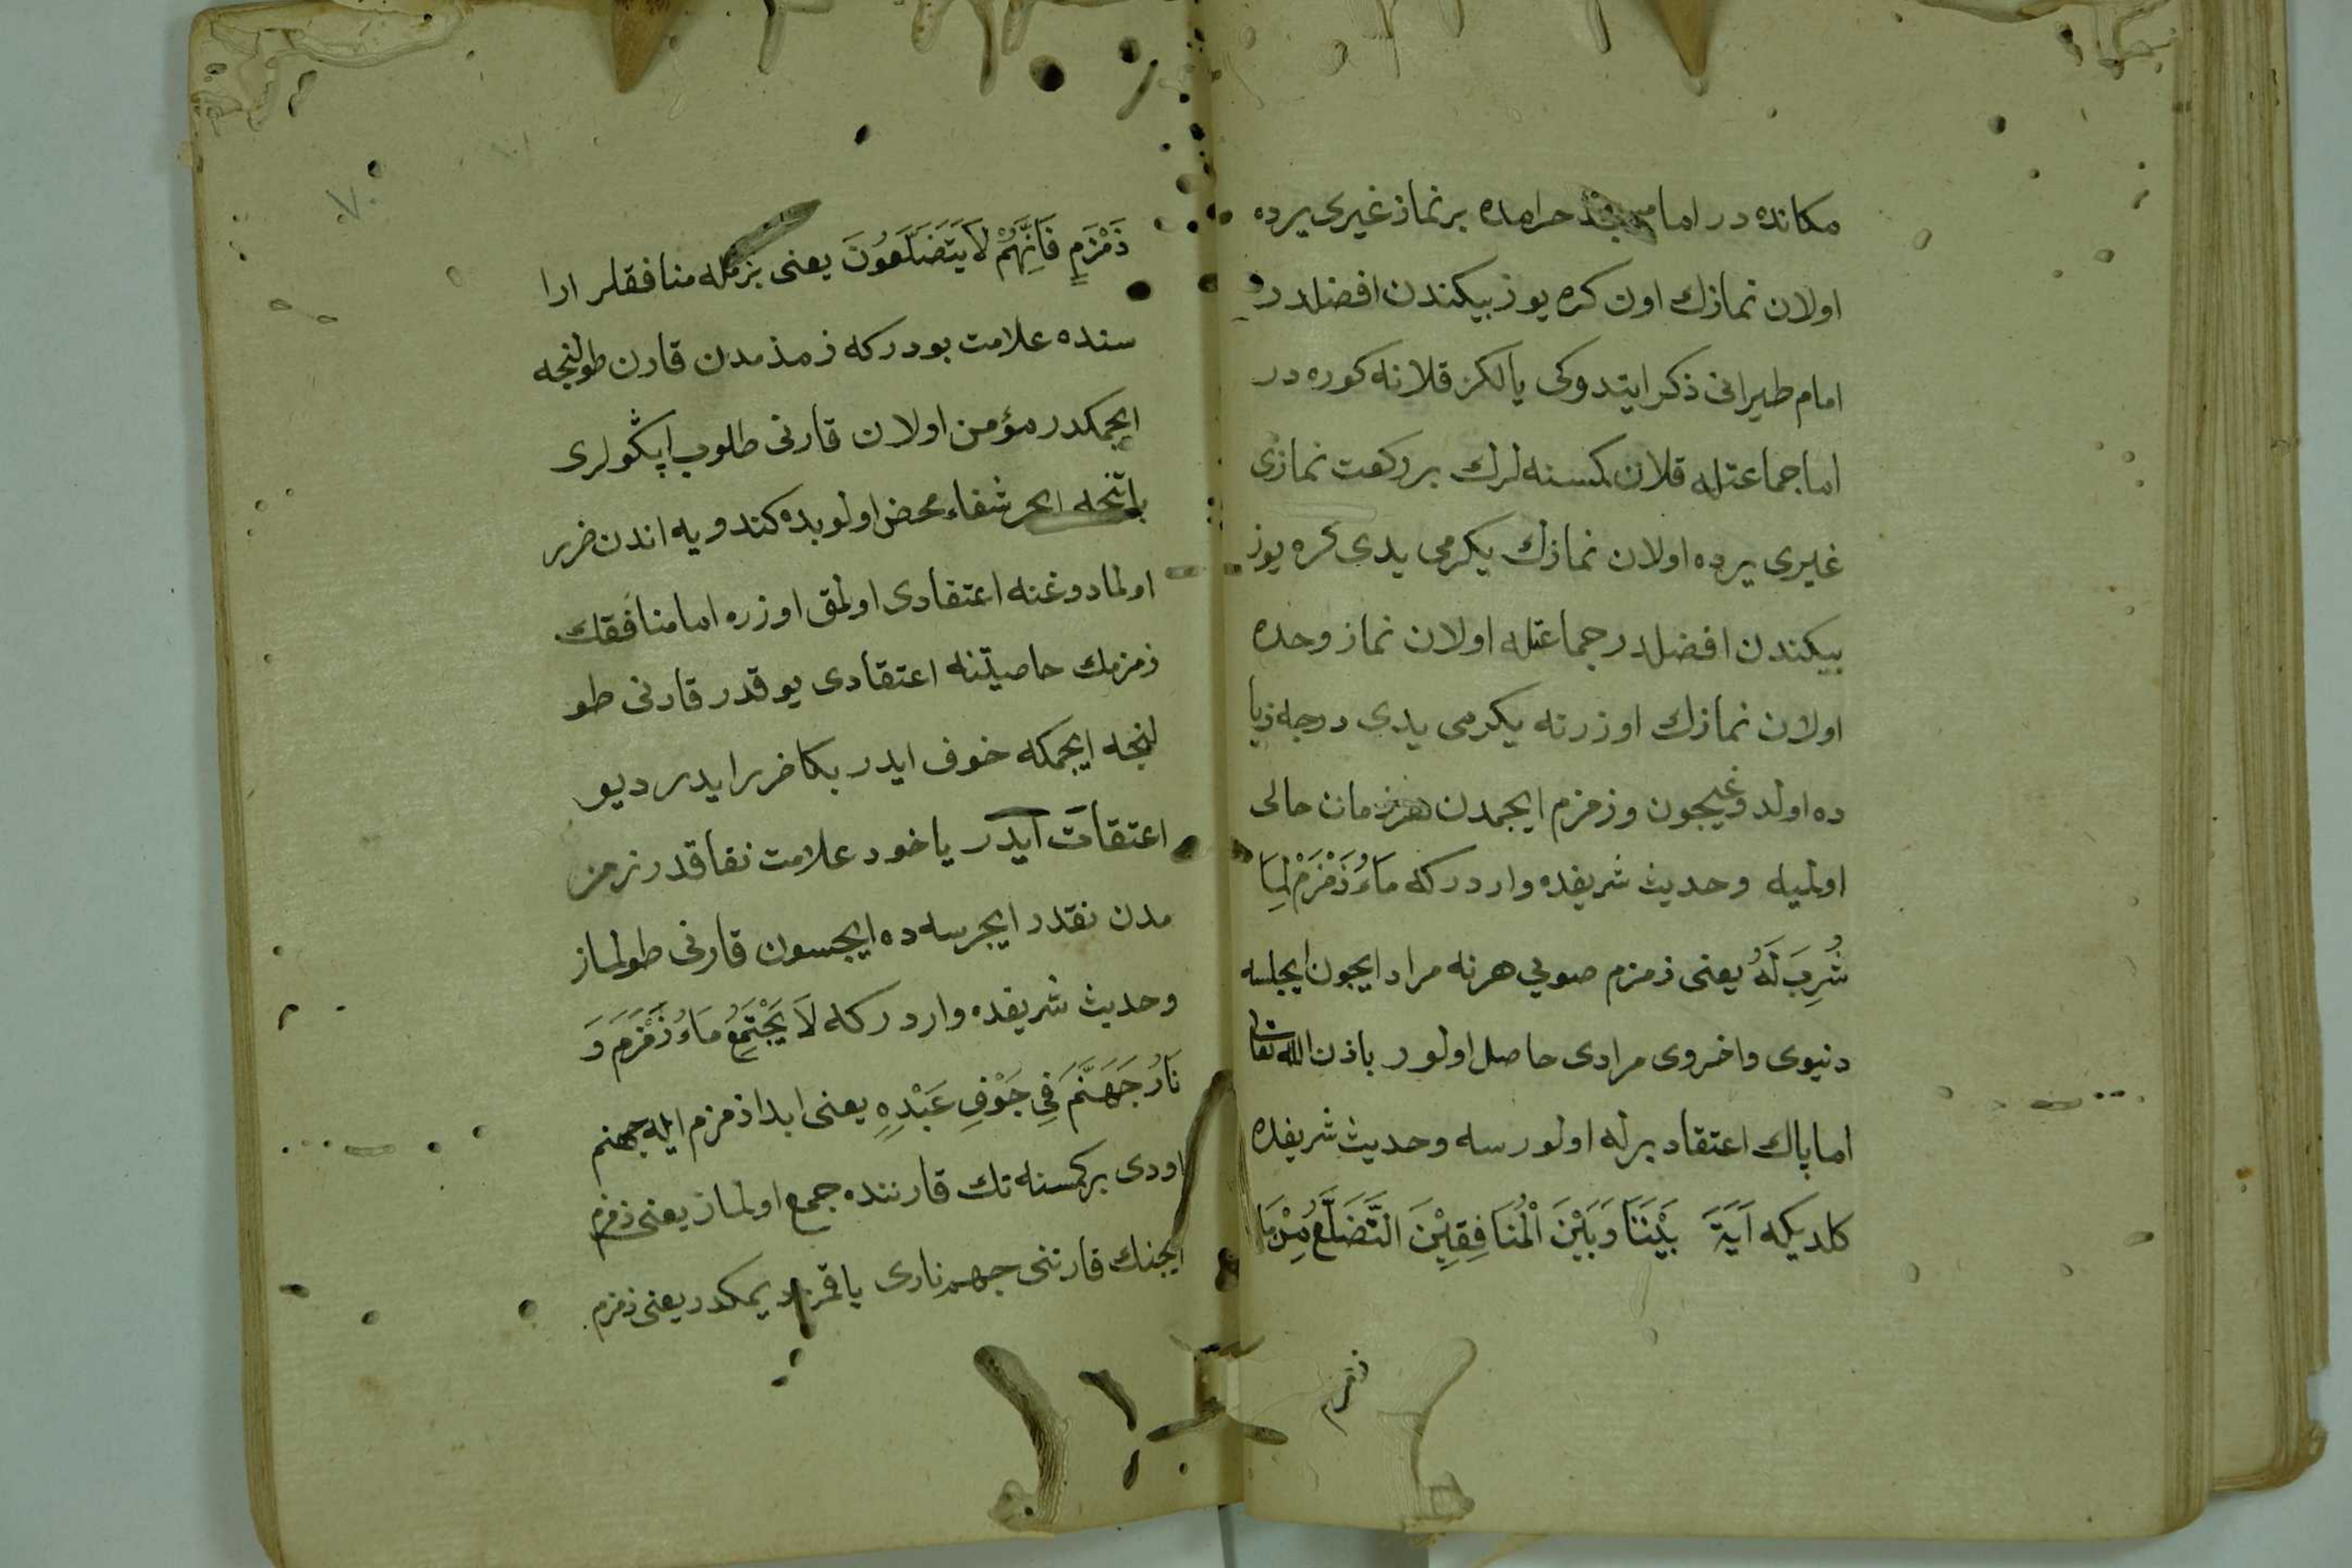 مكانده در اما مسجد حرامده بر نماز غيرى يرده
اولان نمازك اون كره يوز بيكندن افضلدر
امام طبرانى ذكر ايتدوكى يالكز قلانه كوره در
اما جماعتله قلان كمسنه لرك بر ركعت نمازى
غيرى يرده اولان نمازك يكرمى يدى كره يوز
بيكندن افضلدر جماعتله اولان نماز وحده
اولان نمازك اوزرنه يكرمى يدى درجه زيا
ده اولدوغيچون و زمزم ايچمدن هر زمان خالى
اولميه وحديث شريفده وارد در كه مَاءُ زَمْزَمْ لِمَا
شُرِبَ لَهُ يعنى زمزم صويى هر نه مراد ايچون ايچلسه
دنيوى واخروى مرادى حاصل اولور باذن الله تعالى
اما پاك اعتقاد برله اولورسه وحديث شريفده
كلديكه آيَةَ بَيْنَنَا وَبَيْنَ الْمُنَافِقِيْنَ التَّضَلَّعُ مِنْ مَاءِ
زمزم
زَمْزَمٍ فَاِنَّهُمْ لَا يَتَضَلَّعُونَ يعنى بزمله منافقلر ارا
سنده علامت بودر كه زمزمدن قارن طولنجه
ايچمكدر مؤمن اولان قارنى طلوب اپكولرى
ياتنجه ايچر شفاء محض اولوبده كندويه اندن ضرر
اولمادوغنه اعتقادى اولمق اوزره اما منافقك
زمزمك حاصيتنه اعتقادى يوقدر قارنى طو
لنجه ايچمكه خوف ايدر بكا ضرر ايدر ديو
اعتقات ايدر ياخود علامت نفاقدر زمز
مدن نقدر ايچرسه ده ايچسون قارنى طولماز
وحديث شريفده وارد در كه لَا يَجْتَمِعُ مَاءُ زَمْزَمَ وَ
نَارُ جَهَنَّمَ فِى جَوْفِ عَبْدِهِ يعنى ابدا زمزم ايله جهنم
اودى بر كمسنه نك قارننده جمع اولماز يعنى زمزم
ايچنك قارننى جهنم نارى ياقمز ديمكدر يعنى زمزم